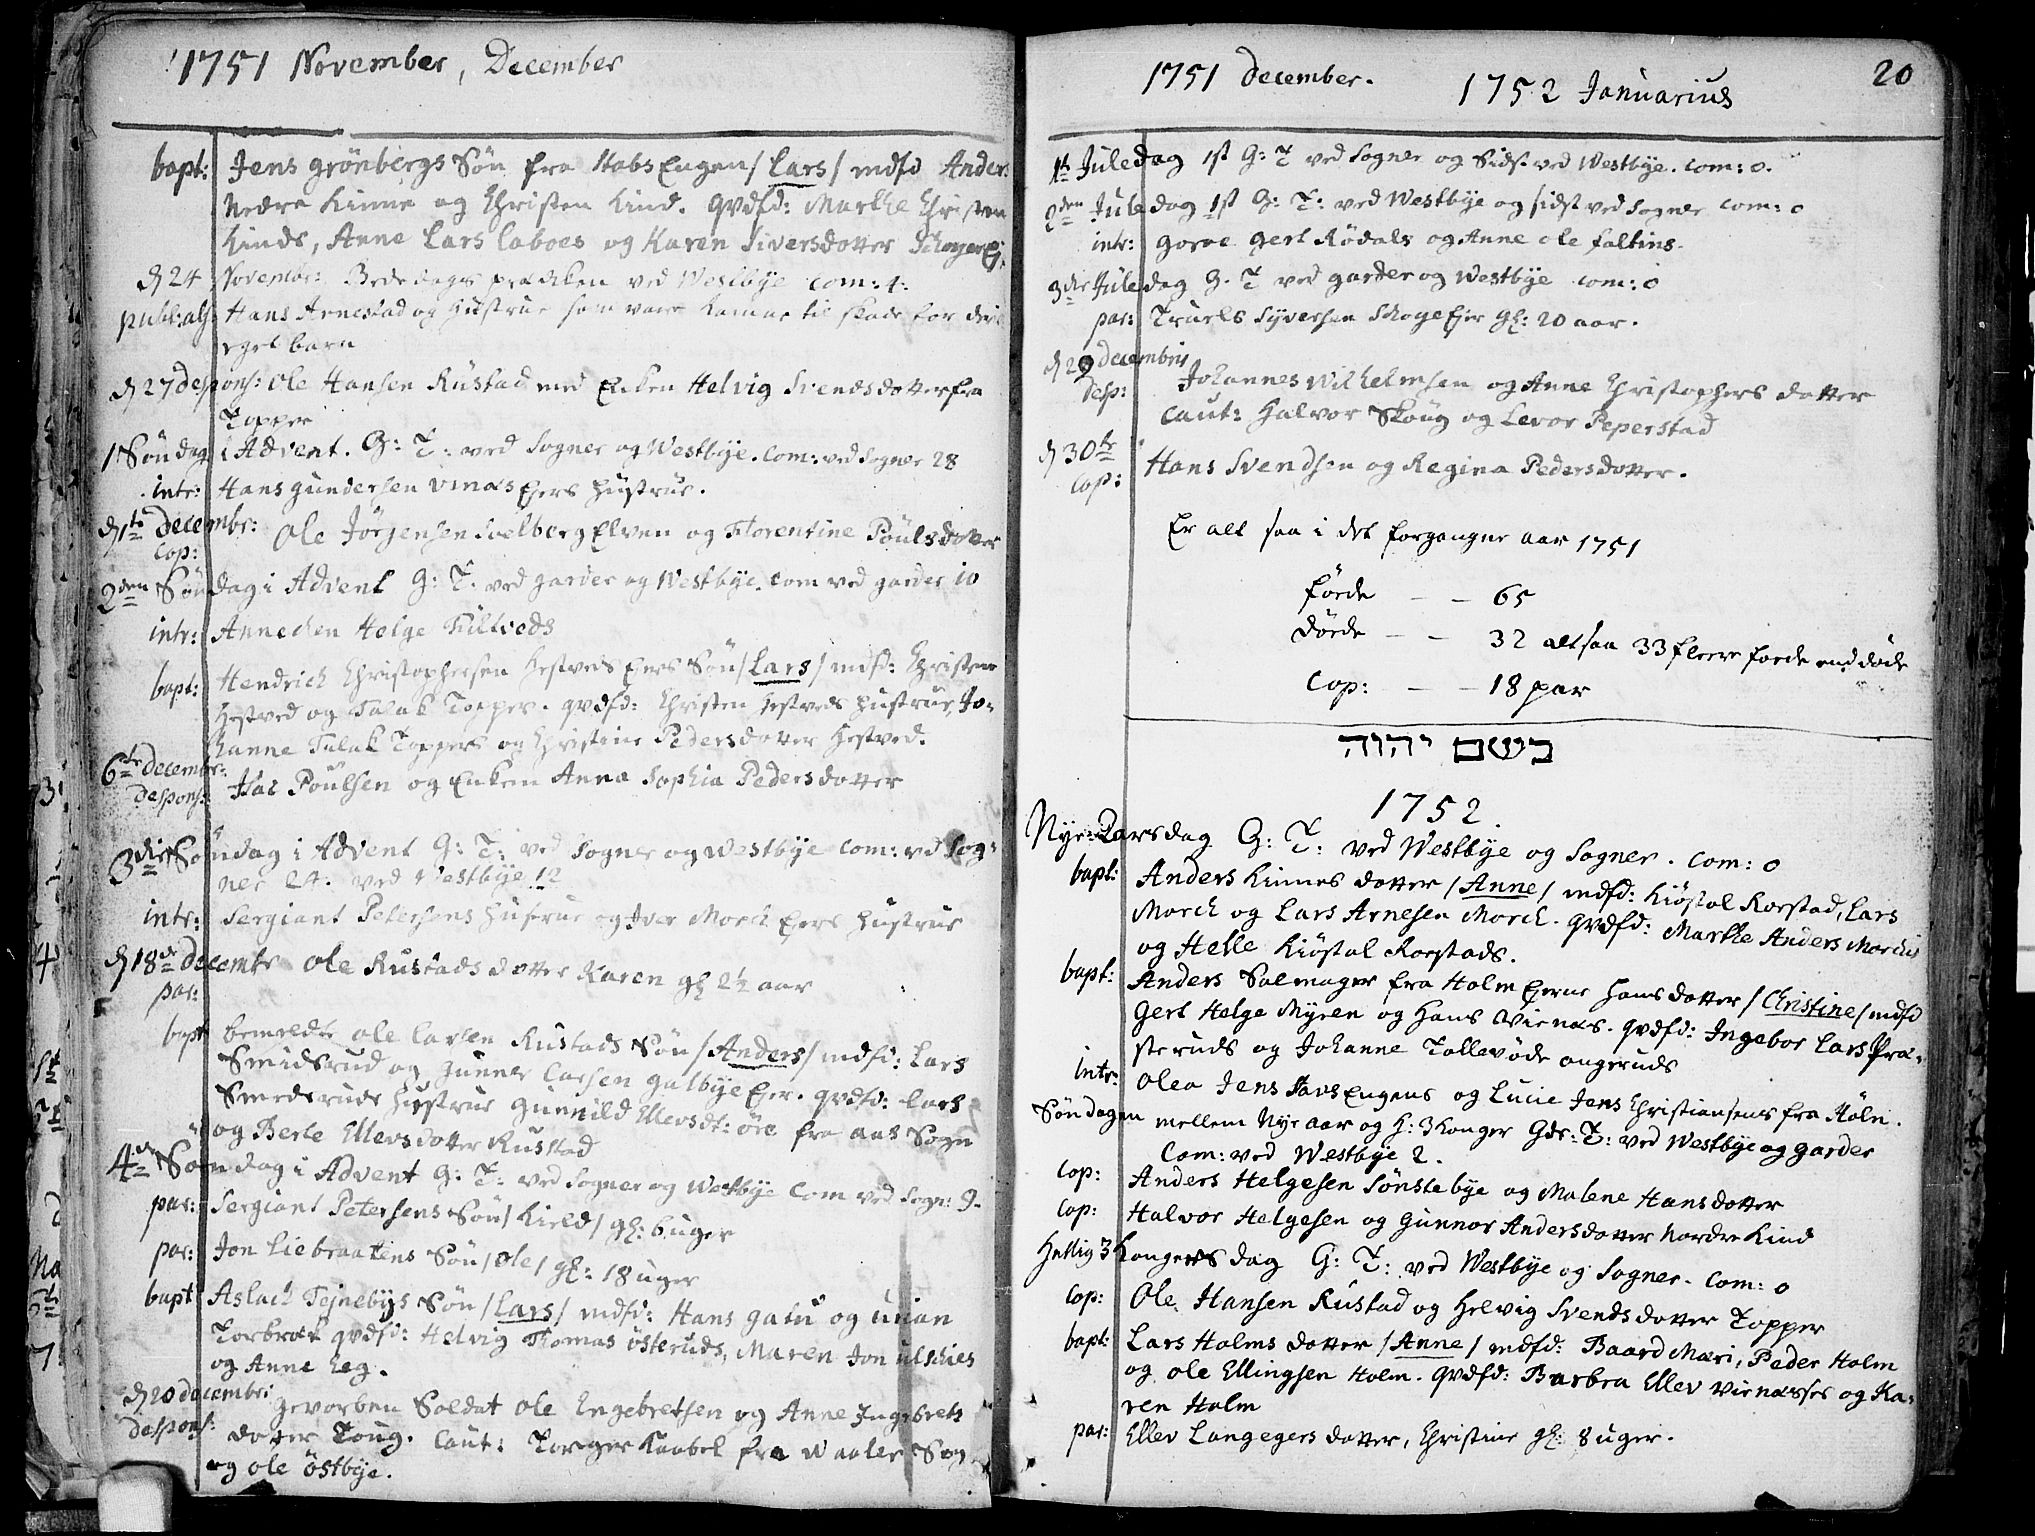 1751 November, December
bapt: Jens Grönbergs Sön fra Habs Engen /Lars/ mdfd Anders
Nedre Kinne og Christen Kind. qvdfd: Marthe Christen
Kinds, Anne Lars Laboes og Karen Siversdotter
d 24 Novembr: Bededags prædiken ved Westbye com: 4.
publ: abs: Hans Arnestad og Hustrue som vare komne til skade for deres
eget barn
d 27 despons: Ole Hansen Rustad med Enken Helvig Svendsdotter fra
Topper
1 Söndag i Advent. G: T: ved Sogner og Westbye. Com: ved Sogner 28
intr: Hans Gundersen Vinæs Eyers Hustrue.
d 1te decembr: Ole Jörgensen Soelberg Elven og Florentine Poulsdotter
Cop:
2den Söndag i Advent G: T: ved garder og Westbye. Com ved garder 10
intr: Annechen Helge Kiltveds
bapt: Hendrich Christophersen Hestveds Eyers Sön /Lars/ mdfd: Christen
Hestved og Talak Topper. qvdfd: Christen Hestveds Hustrue, Jo-
hanne Talak Toppers og Christine Pedersdotter Hestved.
6te decembr: Isac Poulsen og Enken Anna Sophia Pedersdotter
despons:
3die Söndag i Advent G: T: ved Sogner og Westbye com: ved Sog-
ner 24. ved Westbye 12
intr: Sergiant Petersens Hustrue og Iver Morch Eyers Hustrue
d 18de decembr Ole Rustads dotter Karen gl 2½ aar
par:
bapt bemeldte Ole Larsen Rustads Sön /Anders/ mdfd: Lars
Smidsrud og Gunner Larsen Galbye Eyer. qvdfd: Lars
Smedsruds Hustrue Gunnild Ellevsdt: öre fra Aas Sogn
og Berte Ellevsdotter Rustad
4de Söndag i Advent G: T: ved Sogner og Westbye Com ved Sogn: 9.
par: Sergiant Petersens Sön /Kield/ gl: 6 uger
par: Jon Liebraatens Sön /Ole/ gl: 18 uger
bapt Aslach Tejnebys Sön /Lars/ mdfd: Hans Galu og Urian
Torbræk qvdfd: Helvig Thomas Österuds, Maren Jon Ulschies
og Anne Leg.
d 20 decembr: Gevorben Soldat Ole Engebretsen og Anne Ingebrets
despons: dotter Toug. Caut: Torger Kaabel fra Waaler Sogn
og Ole Östbye.
1751 december. 1752 Januarius 20
1te Juledag 1st G: T ved Sogner og Sidst ved Westbye. com: 0.
2den Juledag 1st G: T: ved Westbye og sidst ved Sogner com: 0
intr: Gorve Gert Rödals og Anne Ole Faltins.
3die Juledag G. T ved garder og Westbye com: 0
par: Truels Syversen Schoge Eyer gl: 20 aar.
d 29 decembris
desp: Johannes Wilhelmsen og Anne Christophers dotter
Caut: Halvor Skoug og Levor Peperstad
d 30te
Cop: Hans Svendsen og Regina Pedersdotter.
Er alt saa i det forgangne aar 1751
förde - - 65
dörde - - 32 altsaa 33 fleere förde end döde
Cop: - - 18 par
בשם יהוה
1752.
Nye-Aarsdag G: T: ved Westbye og Sogner. Com: 0
bapt: Anders Kinnes dotter /Anne/ mdfd: Kiöstol Rorstad, Lars
Morch og Lars Arnesen Morch. qvdfd: Marthe Anders Morchs
og Helle Kiöstol Rorstads.
bapt: Anders Salmager fra Holm Eyerne Hans dotter /Christine/ mdfd
Gert Helge Myren og Hans Virnæs. qvdfd: Ingebor Lars Præ-
steruds og Johanne Tollevöde Ongeruds
intr: Olea Jens Habs Engens og Lucie Jens Christiansens fra Höln.
Söndagen mellem Nye aar og H: 3 Konger Gds: T: ved Westbye og garder
Com: ved Westbye 2.
Cop: Anders Helgesen Sönstebye og Malene Hansdotter
Cop: Halvor Helgesen og Gunnor Andersdotter Nordre Kind
Hellig 3 Kongers dag G: T: ved Westbye og Sogner. Com: 0
Cop: Ole Hansen Rustad og Helvig Svendsdotter Topper
bapt: Lars Holms dotter /Anne/ mdfd: Baard Mæri, Peder Holm
og Ole Ellingsen Holm. qvdfd: Barbra Ellev Virnæsses og Ka-
ren Holm
par: Ellev Langegers dotter, Christine gl: 8 uger.